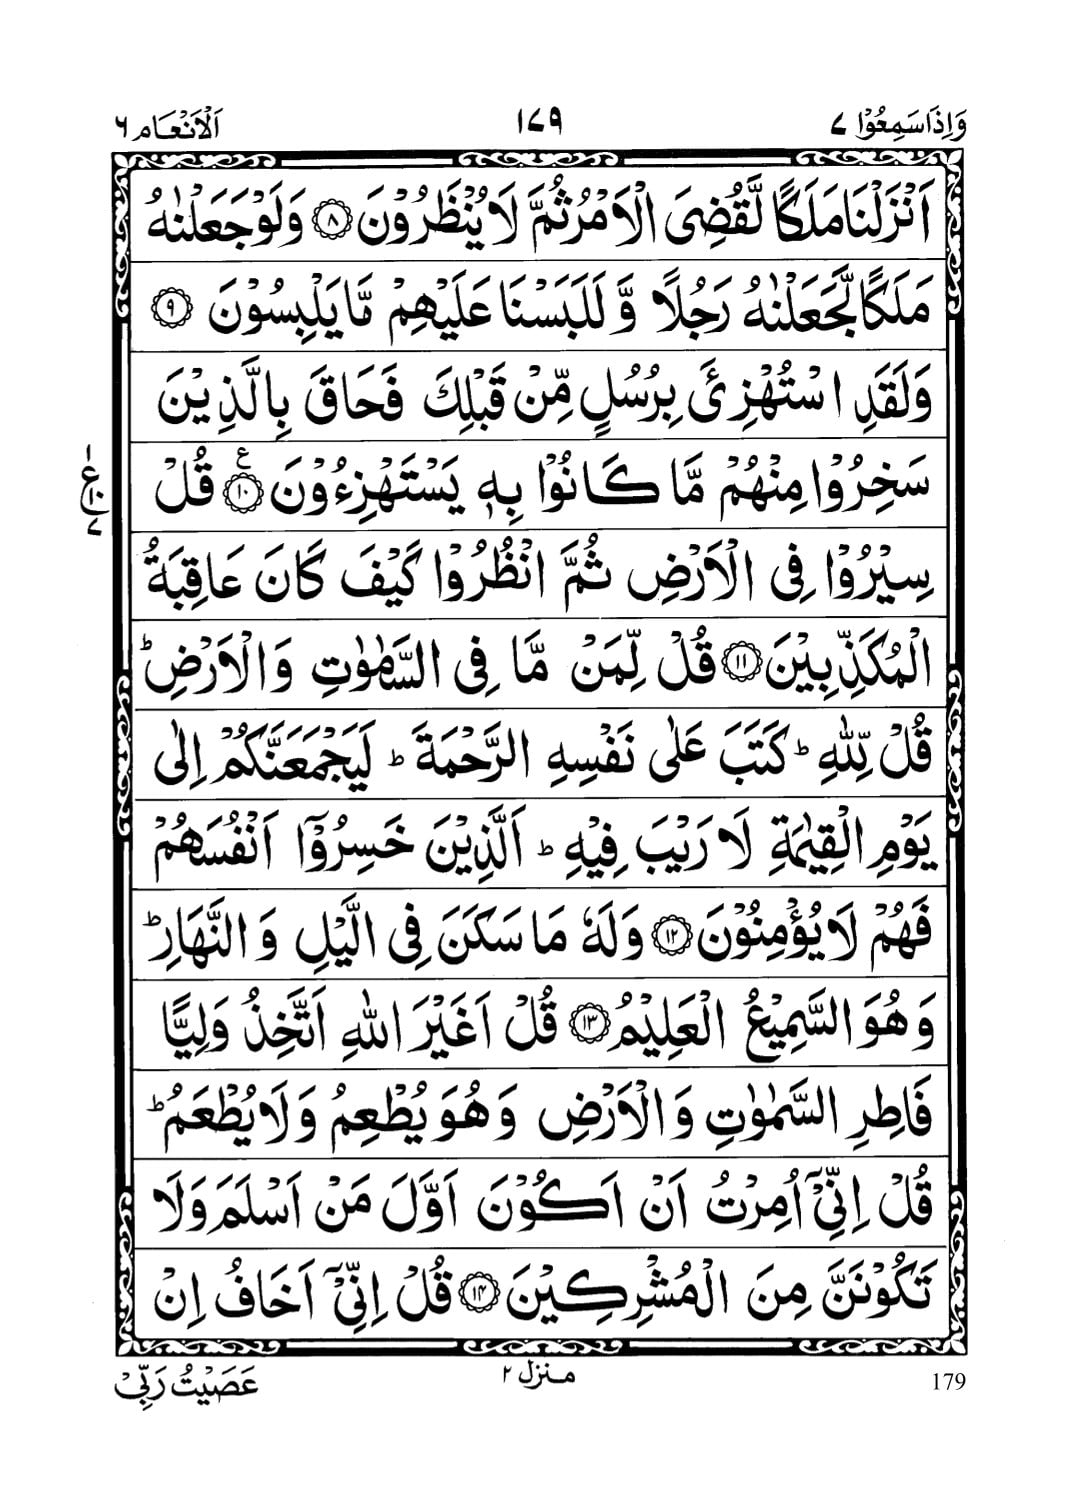 وَاِذَا سَمِعُوْا ٧ ١٧٩ اَلْاَنْعَام ٦
اَنْزَلْنَا مَلَكًا لَّقُضِىَ الْاَمْرُ ثُمَّ لَا يُنْظَرُوْنَ ﴿٨﴾ وَلَوْ جَعَلْنٰهُ
مَلَكًا لَّجَعَلْنٰهُ رَجُلًا وَّ لَلَبَسْنَا عَلَيْهِمْ مَّا يَلْبِسُوْنَ ﴿٩﴾
وَلَقَدِ اسْتُهْزِئَ بِرُسُلٍ مِّنْ قَبْلِكَ فَحَاقَ بِالَّذِيْنَ
سَخِرُوْا مِنْهُمْ مَّا كَانُوْا بِهٖ يَسْتَهْزِءُوْنَ ﴿١٠﴾ ع قُلْ
١ ع ١٠ ٧
سِيْرُوْا فِى الْاَرْضِ ثُمَّ انْظُرُوْا كَيْفَ كَانَ عَاقِبَةُ
الْمُكَذِّبِيْنَ ﴿١١﴾ قُلْ لِّمَنْ مَّا فِى السَّمٰوٰتِ وَالْاَرْضِ ؕ
قُلْ لِّلّٰهِ ؕ كَتَبَ عَلٰى نَفْسِهِ الرَّحْمَةَ ؕ لَيَجْمَعَنَّكُمْ اِلٰى
يَوْمِ الْقِيٰمَةِ لَا رَيْبَ فِيْهِ ؕ اَلَّذِيْنَ خَسِرُوْٓا اَنْفُسَهُمْ
فَهُمْ لَا يُؤْمِنُوْنَ ﴿١٢﴾ وَلَهٗ مَا سَكَنَ فِى الَّيْلِ وَ النَّهَارِ ؕ
وَهُوَ السَّمِيْعُ الْعَلِيْمُ ﴿١٣﴾ قُلْ اَغَيْرَ اللّٰهِ اَتَّخِذُ وَلِيًّا
فَاطِرِ السَّمٰوٰتِ وَالْاَرْضِ وَهُوَ يُطْعِمُ وَلَا يُطْعَمُ ؕ
قُلْ اِنِّىْٓ اُمِرْتُ اَنْ اَكُوْنَ اَوَّلَ مَنْ اَسْلَمَ وَلَا
تَكُوْنَنَّ مِنَ الْمُشْرِكِيْنَ ﴿١٤﴾ قُلْ اِنِّىْٓ اَخَافُ اِنْ
179 منزل ٢ عَصَيْتُ رَبِّىْ